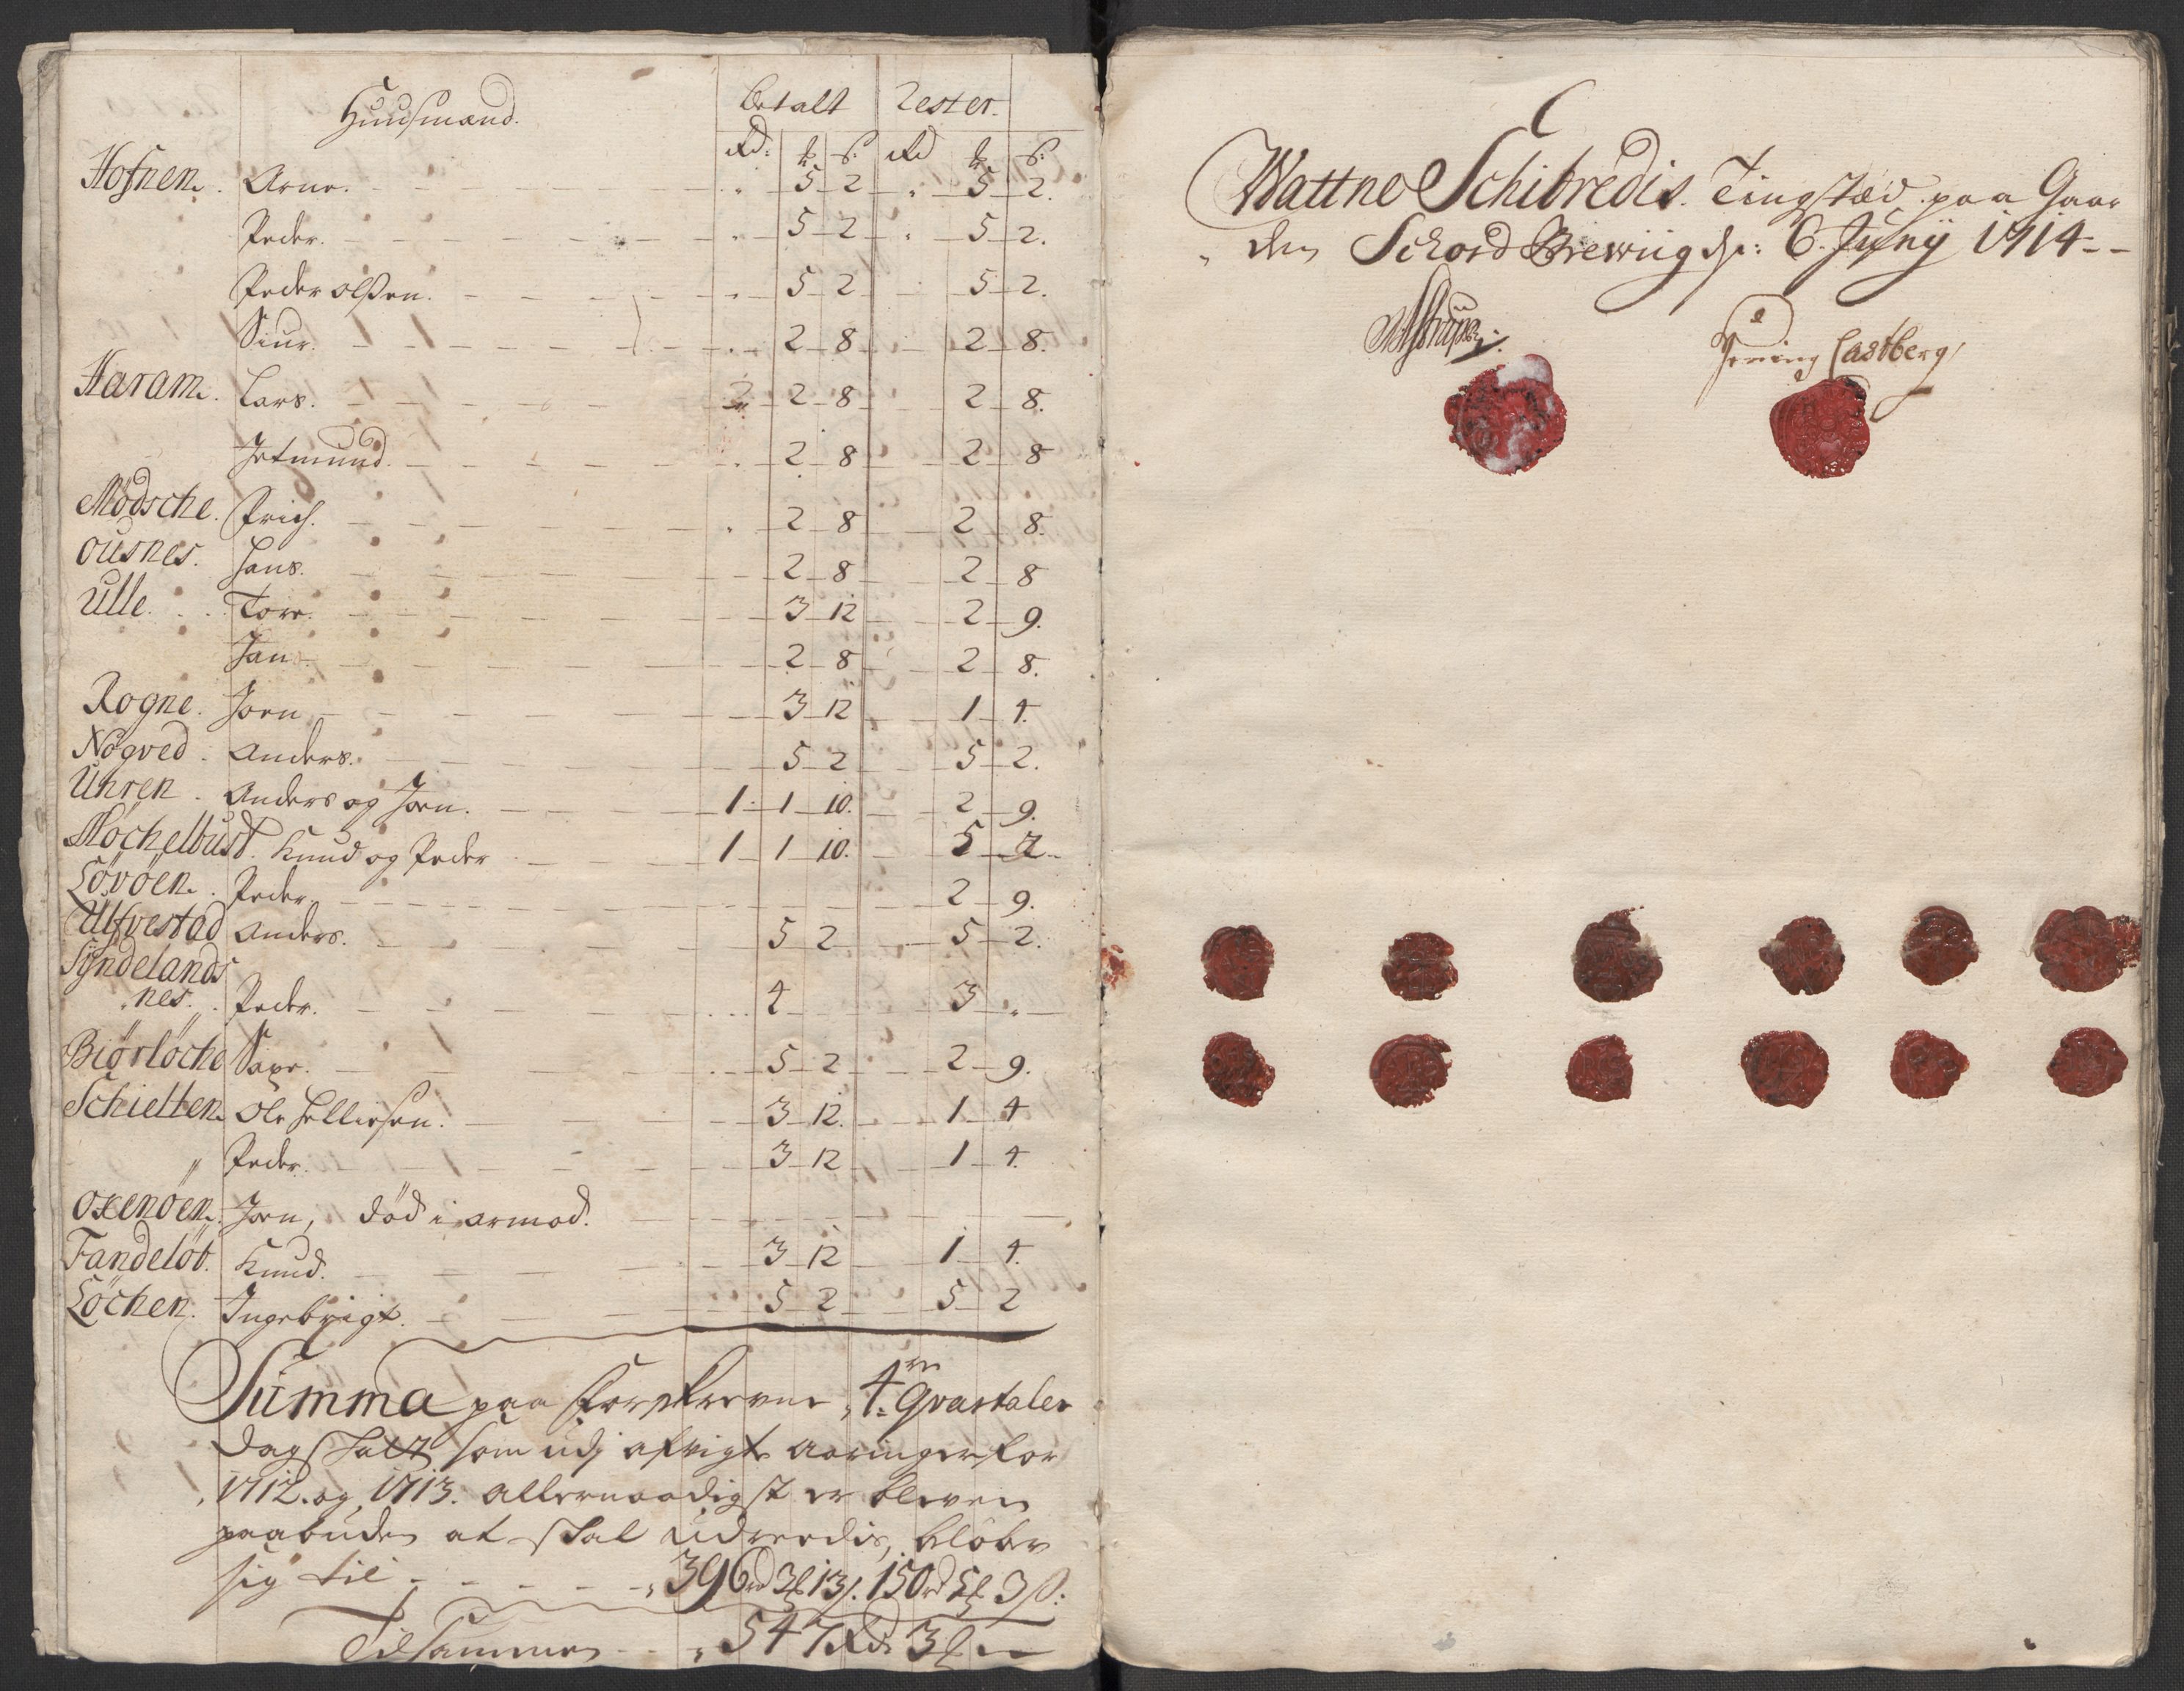 Huusmænd. betalt Rester.
Rd: ꝑ ß: Rd ꝑ ß:
Hofnen. Arne. 5 2 5 2.
Peder. 5 2 5 2.
Peder olßen. 5 2 5 2.
Siur. 2 8 2 8.
Haram. Lars. 2 8 2 8.
Jetmund. 2 8 2 8
Mödsche. 2 8 2 8.
ousnes. Hans. 2 8 2 8
Ulle. Tore. 3 12 2 9.
Jan 2 8 2 8.
Rogne. Joen 3 12 1 4.
Nögved. Anders. 5 2 5 2.
Uhren. Anders og Joen. 1 1 10. 2 9.
Möchelbust. Knud og Peder 1 1 10. 5 2
Lövöen. Peder 2 9.
Ulfvestad Anders. 5 2 5 2.
Syndelands
nes. Peder. 4 3
Biörlöche 5 2 2 9.
Schielten. Ole Helliesen. 3 12. 1 4
" Peder. 3 12 1 4.
oxenöen. Joen, död i armod.
Fandelöb. Knud. 3 12 1 4.
Löchen. Ingebrigt. 5 2 5 2
Summa paa forskrevne 4re Qvartaler
dag skatt som udj afvigte aaringer for
1712. og 1713. allernaadigst er bleven
paabuden at skal udreedis, beløber
sig til 396 rd 3ꝑ 13ß. 150 rd 5ꝑ 3ß:
Tilsammen 547 Rd 3ꝑ
Wattne Schibredis. Tingstæd paa Gaar
den Schord Brewiig d: 6. Juny 1714
Jening Castberg